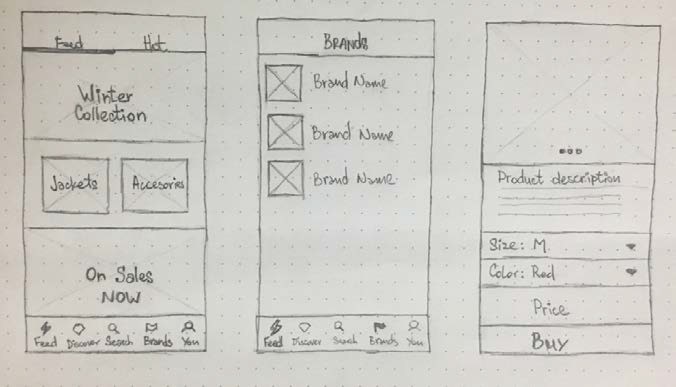 Feed Hot
Winter
Collection
Jackets Accesories
On Sales
NOW
Feed Discover Search Brands You
BRANDS
Brand Name
Brand Name
Brand Name
Feed Discover Search Brands You
Product description
Size: M
Color: Red
Price
BUY